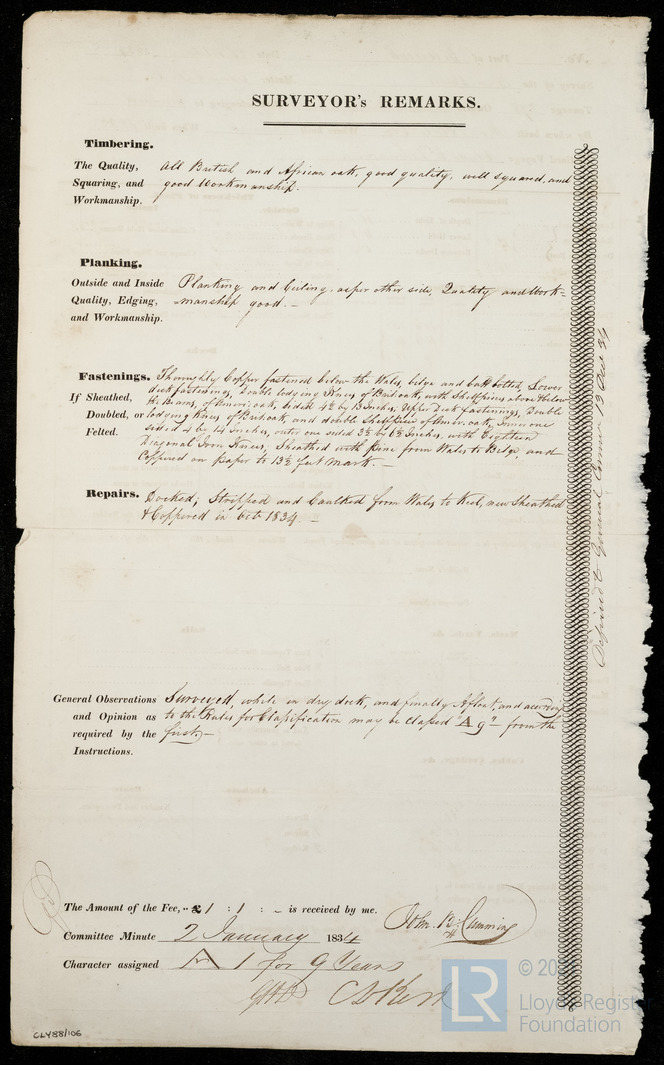 SURVEYOR's REMARKS.
Timbering.
The Quality, Squaring, and Workmanship.
All British and African oak, good quality, well squared, and
good Workmanship.
Planking.
Outside and Inside Quality, Edging, and Workmanship.
Planking and Ceiling, as per other side, Quality and Work=
manship good.—
Fastenings.
If Sheathed, Doubled, or Felted.
Thoroughly Copper fastened below the Wales, belge and butt bolted, Lower
deck fastenings, Double lodging Knees of Brit. oak, with Shelf pieces above & below
the Beams, of Amer. oak, sided 4½ by 13 Inches, Upper Deck fastenings, Double
lodging Knees of Brit. oak, and double Shelf Piece of Amer. oak, inner one
sided 4 by 14 Inches, outer one sided 3½ by 6½ Inches, with Eighteen
Diagonal Iron Knees, Sheathed with Pine from Wales to Belge, and
Coppered on paper to 13½ feet mark.—
Repairs.
Docked, Stripped and Caulked from Wales to Keel, new Sheathed
& Coppered in Octr 1834.—
General Observations and Opinion as required by the Instructions.
Surveyed, while in dry dock, and finally Afloat, and according
to the Rules for Classification may be Classed "A 9" from the
first,—
The Amount of the Fee, ·· £ 1 : 1 : – is received by me.
John B. Cumming
Committee Minute 2 January 1834
Character assigned A 1 for 9 Years
13 Dec 34
CLY88/106
LR
Lloyd's Register
Foundation